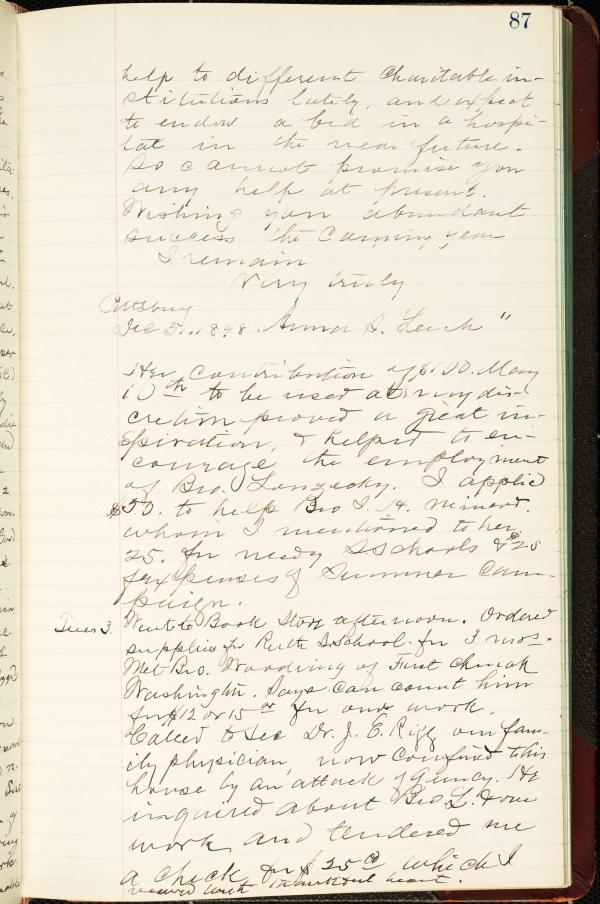 87
help to different Charitable in-
stitutions lately, and expect
to endow a bed in a hospi-
tal in the near future.
So cannot promise you
any help at present.
Wishing you abundant
success the Coming year
I remain
Very truly
Pittsburg
Dec 31, 1898 Anna S. "
Her Contribution of $100. May
10th to be used at my dis-
cretion proved a great in-
spiration, & helped to en-
courage the employment
of Bro. I applied
$50. to help Bro I. H.
whom I mentioned to her,
25. for needy S Schools & $25
for expenses of Summer Cam-
paign.
Tues 3. Went to Book Store afternoon. Ordered
supplies for Ruth S School for 3 mos.
Met Bro. Wooding of First Church
Washington. Says can count him
for $12 or 15 for our work.
Called to see Dr. J. E. Rigg our fam-
ily physician, now confined to his
house by an attack of . He
inquired about Bro L. & our
work and tendered me
a check for $25 which I
received with thankful heart.